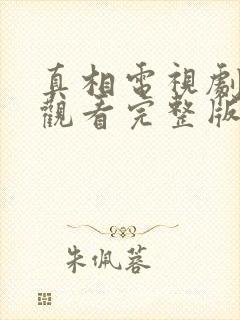 真相電視劇
觀看完整版
朱佩蓉